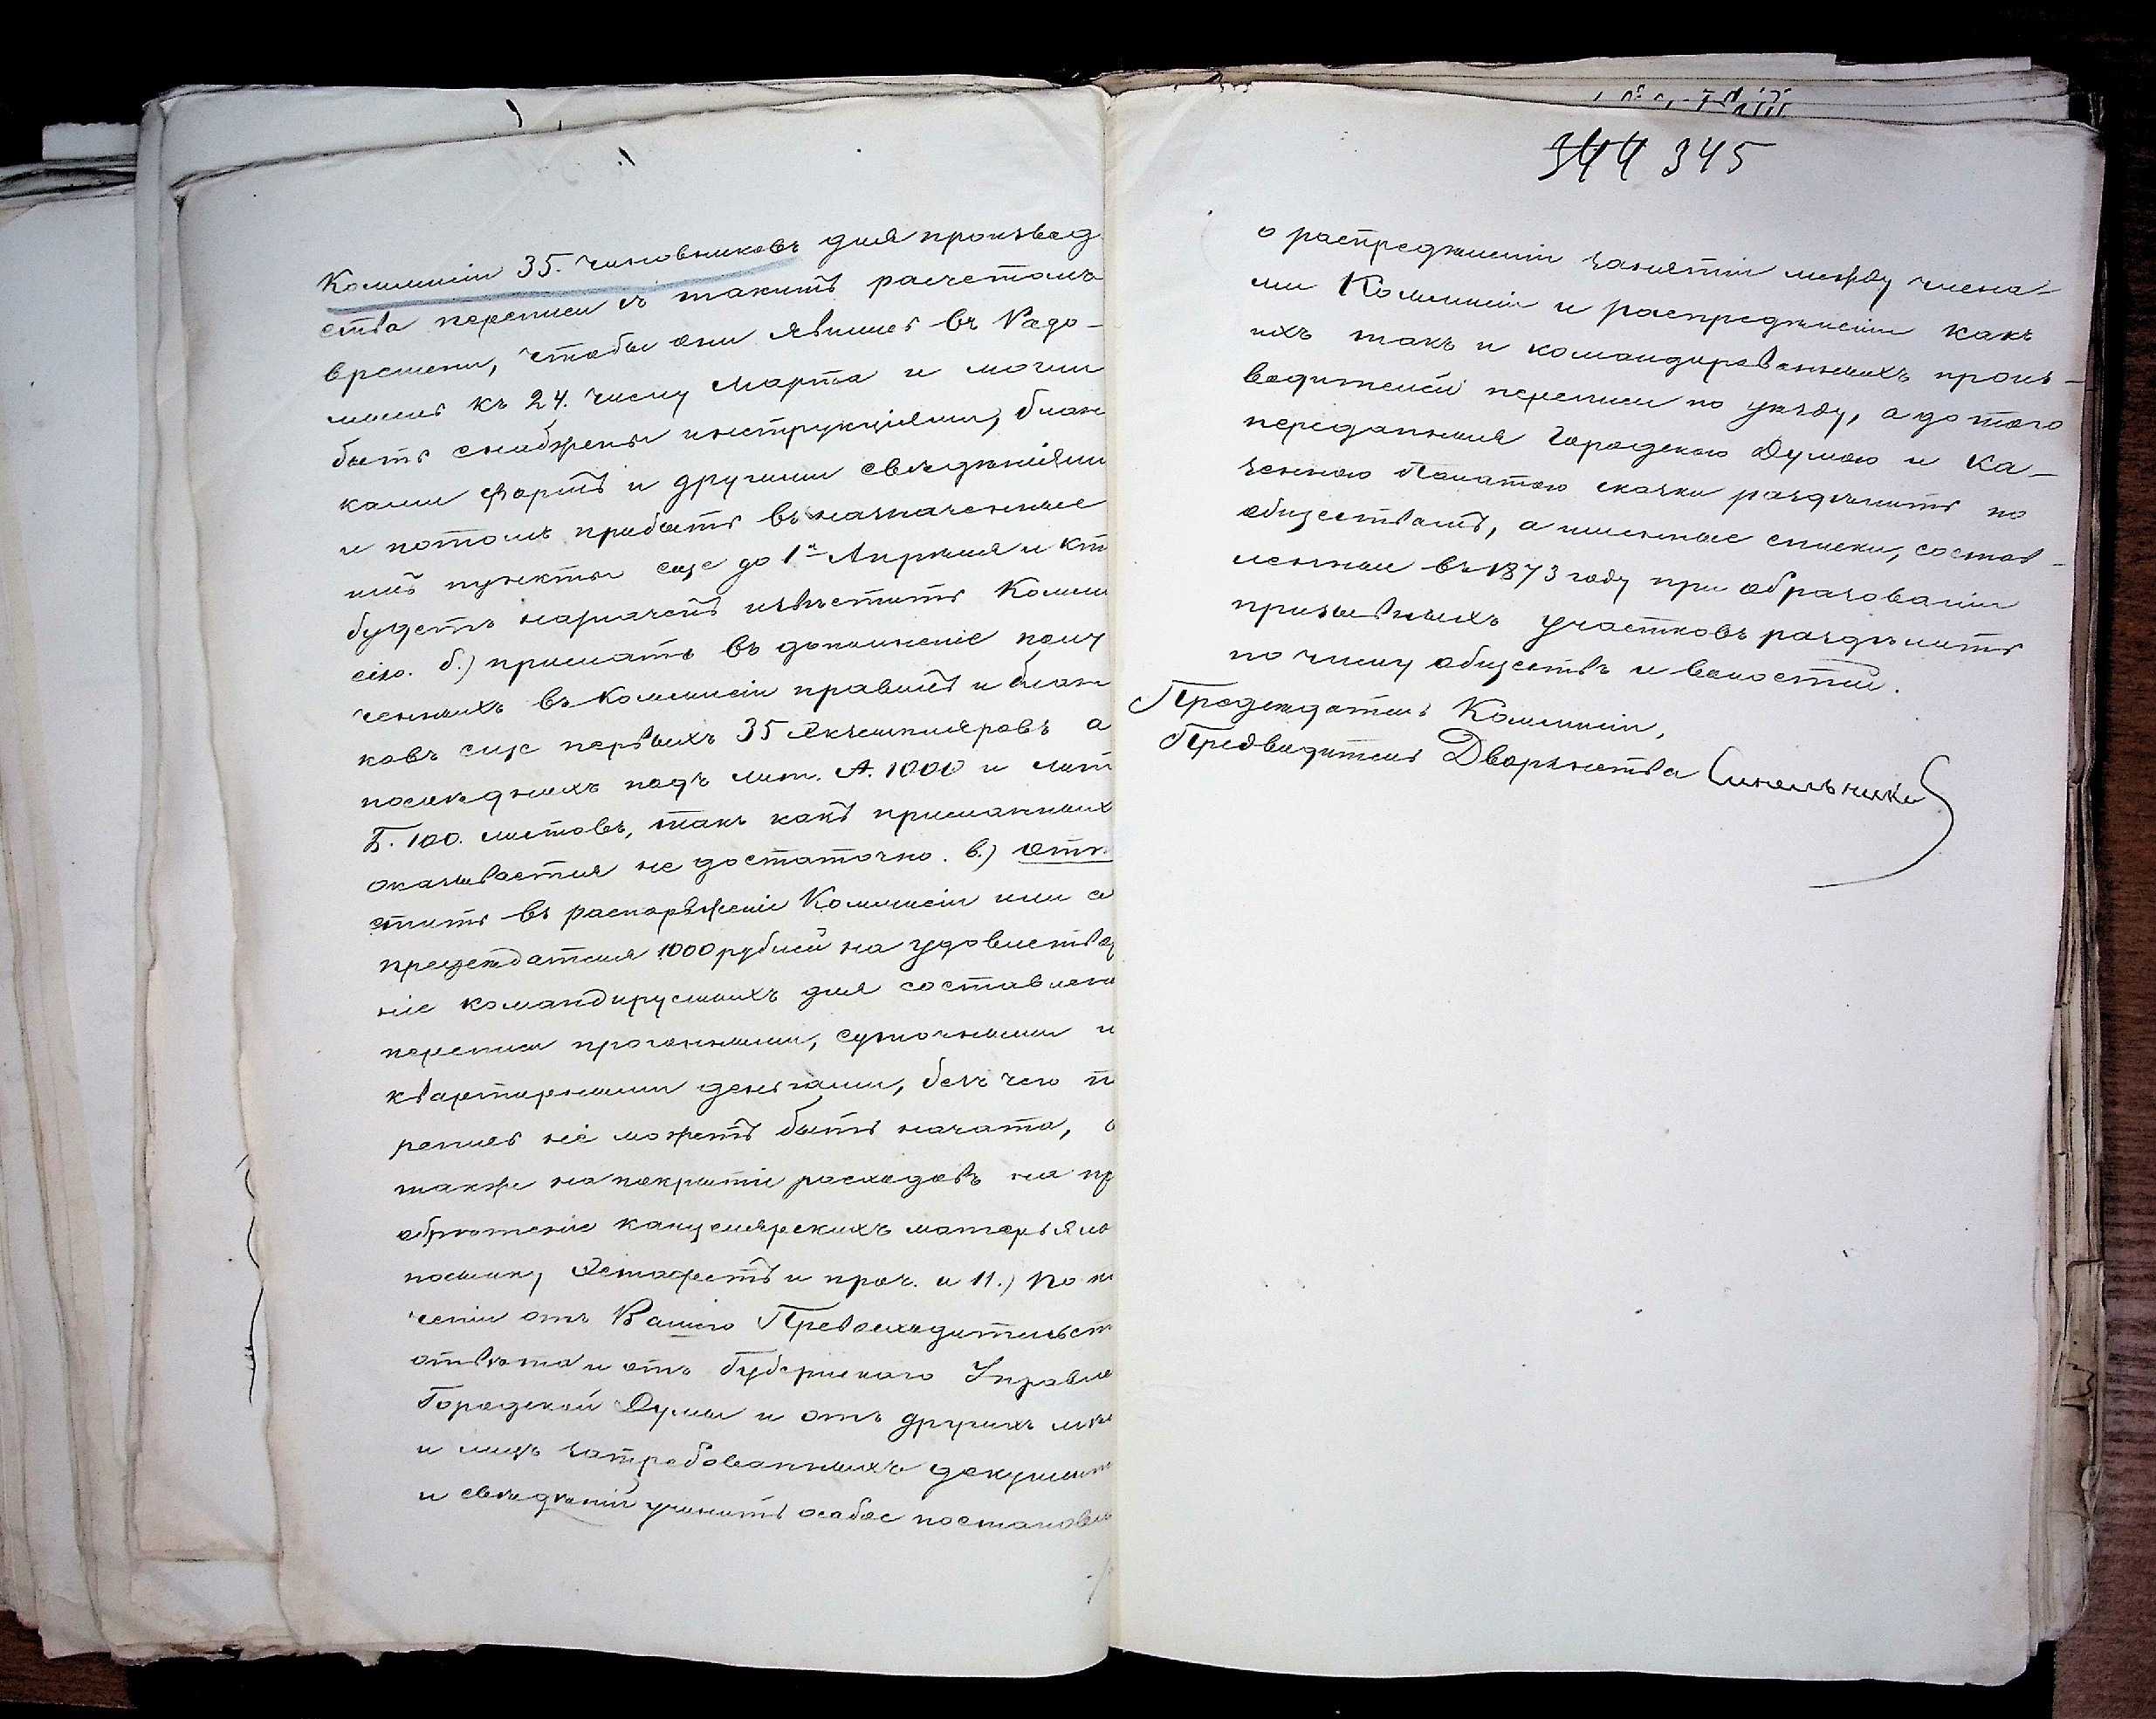 Коммисіи 35. чиновниковъ для производ
ства переписи съ такимъ расчетомъ
времени, чтобы они явились въ Радо-
мысль къ 24. числу Марта и могли
быть снабжены инструкціями, блан
ками формъ и другими свѣдѣніями
и потомъ прибыть въ назначенные
имъ пункты еще до 1го Апрѣля и кто
будетъ назначенъ извѣстить Комми
сію. б.) прислать въ дополненіе полу
ченныхъ въ Коммисіи правилъ и блан
ковъ еще первыхъ 35 экземпляровъ а
послѣднихъ подъ лит. А. 1000 и лит
Б. 100. листовъ, такъ какъ присланныхъ
оказывается не достаточно. в.) отпу
стить въ распоряженіе Коммисіи или ея
предсѣдателя 1000 рублей на удовлетвор
ніе командируемыхъ для составлені
переписи прогонными, суточными и
квартирными деньгами, безъ чего пе
репись не можетъ быть начата, а
также на покрытіе расходовъ на пр
обрѣтеніе канцелярскихъ матерьяло
посылку эстафетъ и проч. и 11.) По полу
ченіи отъ Вашего Превосходительст
отвѣта и отъ Губернскаго Управле
Городской Думы и отъ другихъ мѣс
и лицъ затребованныхъ документ
и свѣдѣній учинить особое постановле
344 345
о распредѣленіи занятій между члена-
ми Коммисіи и распредѣленіи какъ
ихъ такъ и командированныхъ произ-
водителей переписи по уѣзду, а до того
переданныя Городскою Думою и Ка-
зенною Палатою сказки раздѣлить по
обществамъ, а именные списки, состав-
ленные въ 1873 году при образованіи
призывныхъ участковъ раздѣлить
по числу обществъ и волостей.
Предсѣдатель Коммисіи,
Предводитель Дворянства Синельниковъ